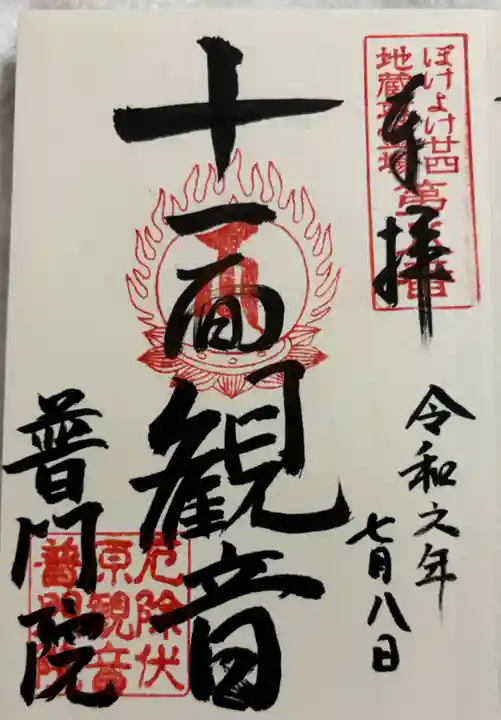 ぼけよけ廿四
地蔵尊霊場
奉拝
令和元年
七月八日
十一面観音
普門院
厄除伏
原観音
普門院